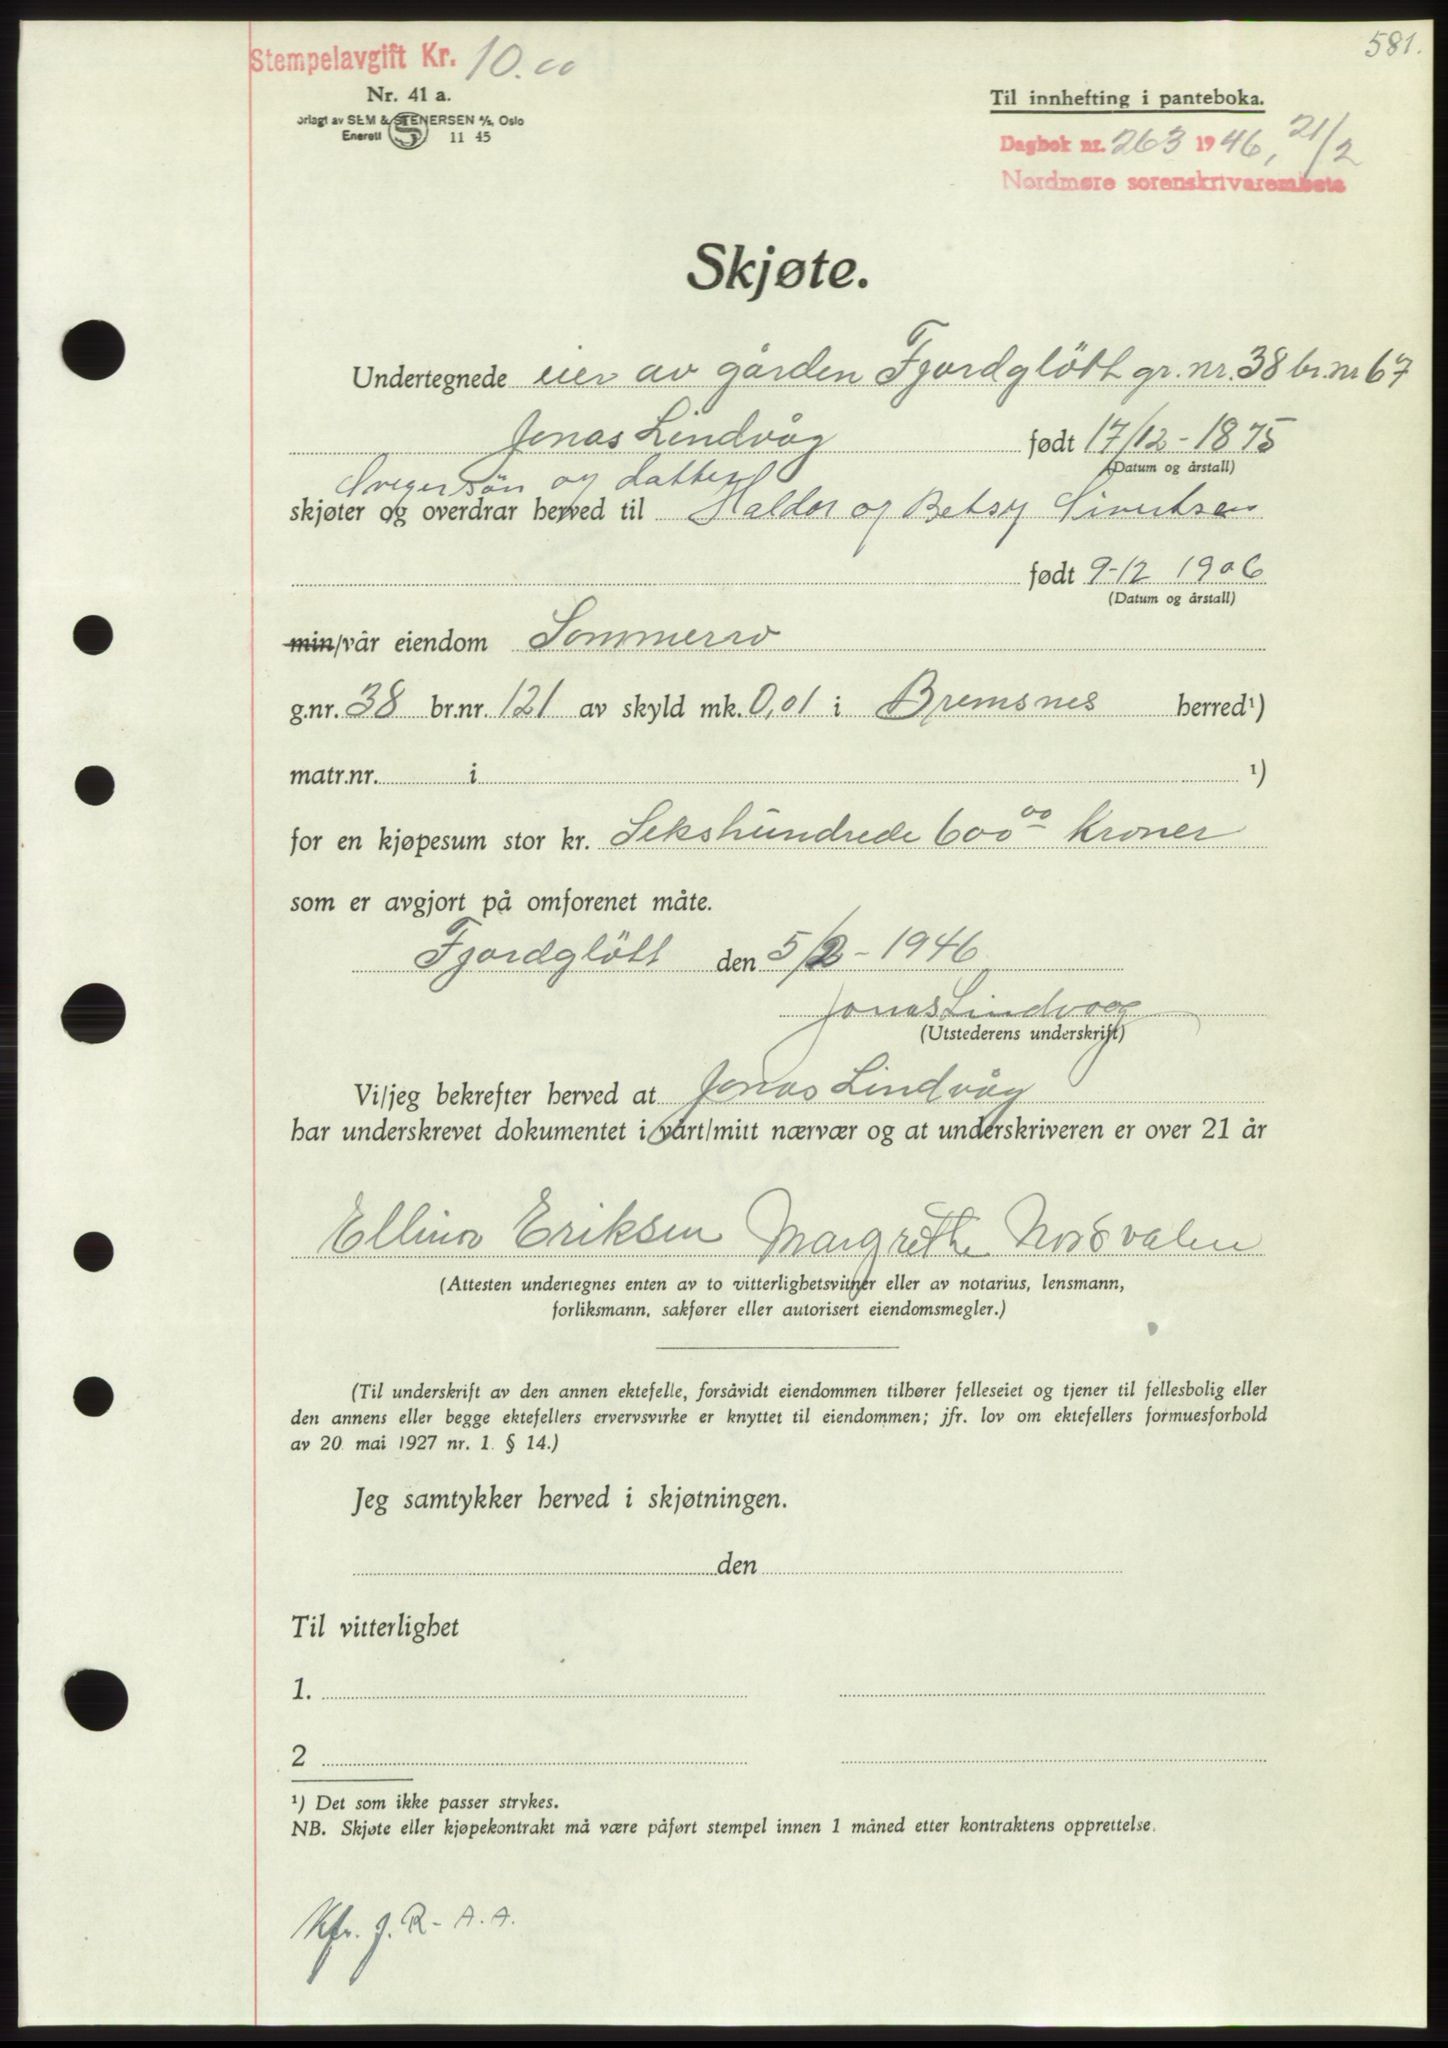 581.
Stempelavgift Kr. 10.00
Nr. 41 a.
orlagt av SEM & STENERSEN A/S, Oslo
Enerett S 11 45
Til innhefting i panteboka.
Dagbok nr. 263 1946, 21/2
Nordmøre sorenskrivarembete
Skjøte.
Undertegnede eier av gården Fjordglött gr. nr. 38 br. nr 67
Jonas Lindvåg født 17/12 - 1875
(Datum og årstall)
Svegersön og datter
skjøter og overdrar herved til Haldor og Betsy Sivertsen
født 9-12 1906
(Datum og årstall)
min/vår eiendom Sommerro
g.nr. 38 br.nr. 121 av skyld mk. 0,01 i Bremsnes herred¹)
matr.nr. i ¹)
for en kjøpesum stor kr. Sekshundrede 600 00 Kroner
som er avgjort på omforenet måte.
Fjordglött den 5/2 - 1946
Jonas Lindvaag
(Utstederens underskrift)
Vi/jeg bekrefter herved at Jonas Lindvåg
har underskrevet dokumentet i vårt/mitt nærvær og at underskriveren er over 21 år
Ellinor Eriksen Margrethe Nordvalen
(Attesten undertegnes enten av to vitterlighetsvitner eller av notarius, lensmann,
forliksmann, sakfører eller autorisert eiendomsmegler.)
(Til underskrift av den annen ektefelle, forsåvidt eiendommen tilhører felleseiet og tjener til fellesbolig eller
den annens eller begge ektefellers ervervsvirke er knyttet til eiendommen; jfr. lov om ektefellers formuesforhold
av 20 mai 1927 nr. 1 § 14.)
Jeg samtykker herved i skjøtningen.
den
Til vitterlighet
1.
2
¹) Det som ikke passer strykes.
NB. Skjøte eller kjøpekontrakt må være påført stempel innen 1 måned etter kontraktens opprettelse.
Kfr. J. R - A. A.